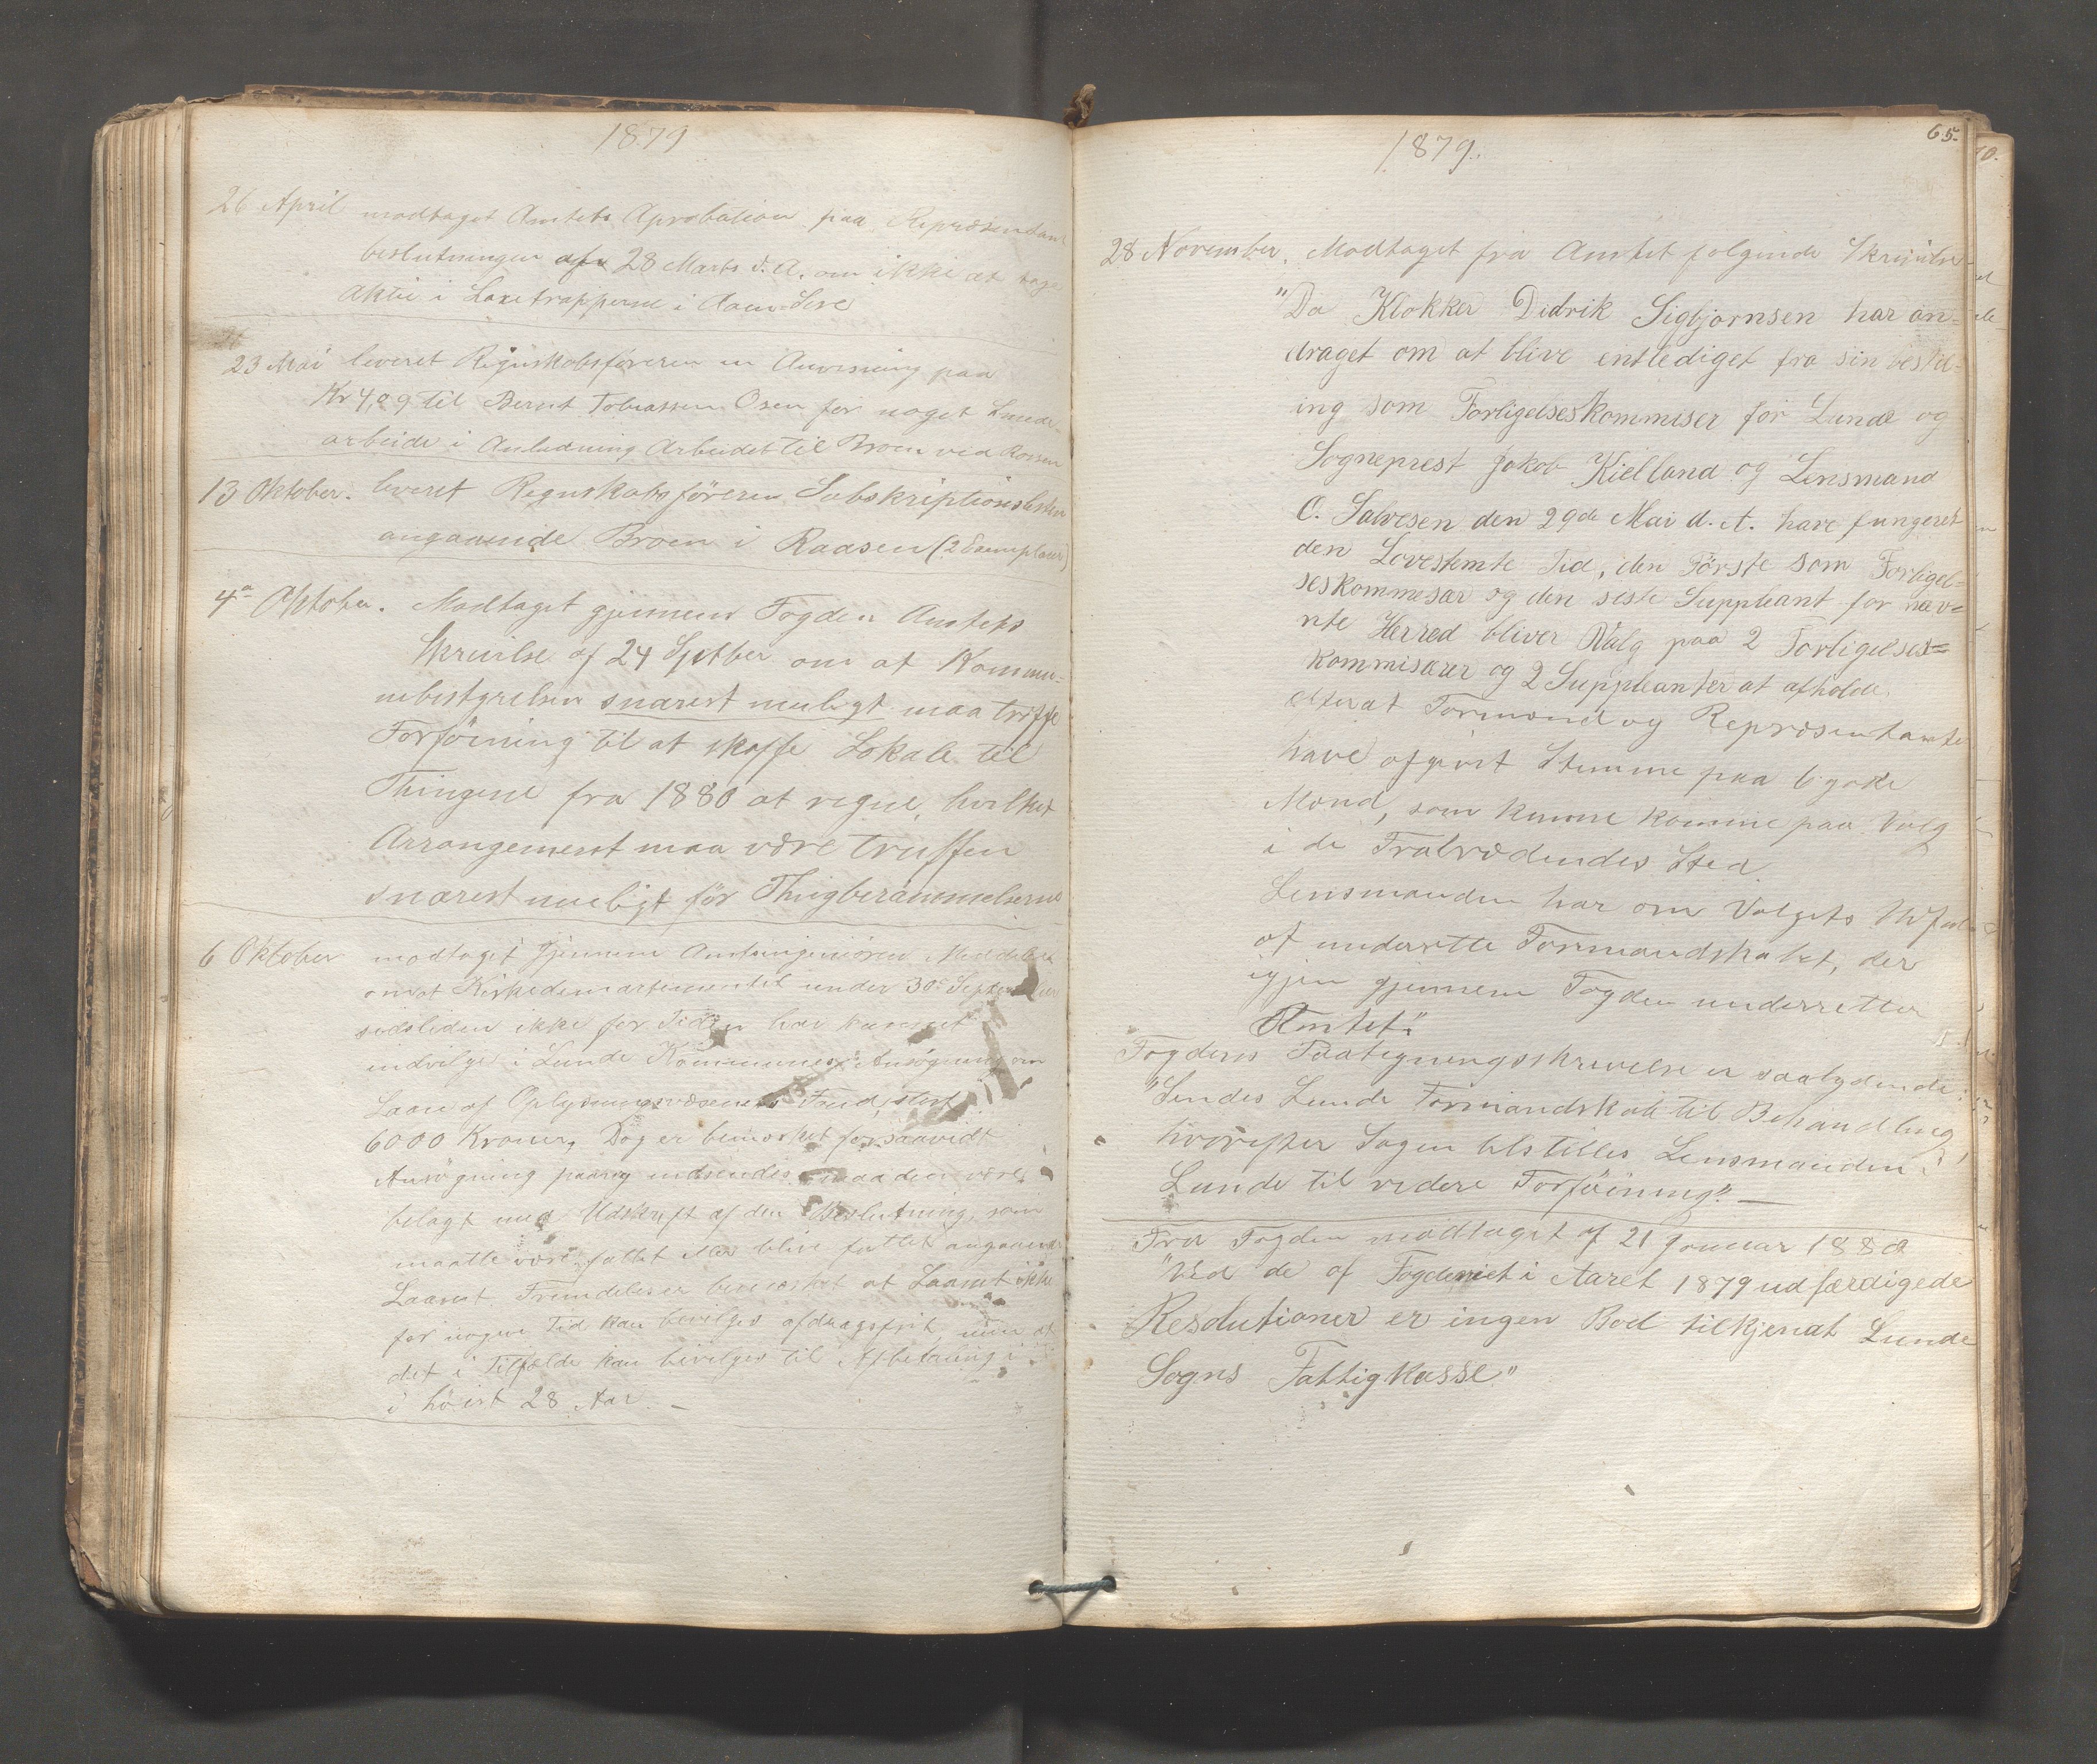 1879
26 April modtaget Amtets Aprobation paa Repræsentant
beslutningen af 28 Marts d. A. om ikke at tage
Aktie i Laxetrapperne i Aaen Sire
23 Mai leveret Regnskabsføreren en Anvisning paa
Kr 4,09 til Bernt Tobiassen Osen for noget
arbeide i Anledning Arbeidet til Broen ved
13 Oktober. leveret Regnskabsføreren Subskriptionslisten
angaaende Broen i Raasen (2 Exemplarer)
4de Oktober. Modtaget gjennem Fogden Amtets
Skrivelse af 24 Septber om at Kommu-
nebestyrelsen snarest muligt maa træffe
Forføining til at skaffe Lokale til
Thingene fra 1880 at regne, hvilket
Arrangement maa være truffen
snarest muligt før Thingberammelserne
6 Oktober modtaget gjennem Amtsingeniøren Meddelelse
om at Kirkedepartementet under 30 September
sidstleden ikke for Tiden har kunnet
indvilge i Lunde Kommunes Ansøgning om
Laan af Oplysningsvæsenets Fond, stort
6000 Kroner, Dog er bemærket forsaavidt
Ansøgning paany indsendes maa den være
belagt med Udskrift af den Beslutning, som
maatte være fattet eller blive fattet angaaende
Laanet. Fremdeles er bemærket at Laanet ikke
for nogen Tid kan bevilges afdragsfrit, men at
det i Tilfælde kan bevilges til Afbetaling i
i høist 28 Aar. –
65.
1879.
28 November. Modtaget fra Amtet følgende Skrivelse
"Da Klokker Didrik Sigbjørnsen har an-
draget om at blive entlediget fra sin bestil-
ing som Forligelseskommiser for Lunde og
Sogneprest Jakob Kielland og Lensmand
O. Salvesen den 29de Mai d. A. have fungeret
den Lovestemte Tid, den Første som Forligel-
seskommesær og den siste Suppleant for næv-
nte Herred bliver Valg paa 2 Forligelses=
kommisærer og 2 Suppleanter at afholde.
efterat Formænd og Repræsentanter
have afgivt Stemme paa 6 gode
Mænd, som kunne komme paa Valg
i de Fratrædendes Sted.
Lensmanden har om Valgets Udfald
at underrette Formandskabet, der
igjen gjennem Fogden underretter
Amtet."
Fogdens Paategningsskrivelse er saalydende:
"Sendes Lunde Formandskab til Behandling,
hvorefter Sagen tilstilles Lensmanden i
Lunde til videre Forføining". –
Fra Fogden modtaget af 21 Januar 1880
"Ved de af Fogderiet i Aaret 1879 udfærdigede
Resolutioner er ingen Bod tilkjendt Lunde
Sogns Fattigkasse."